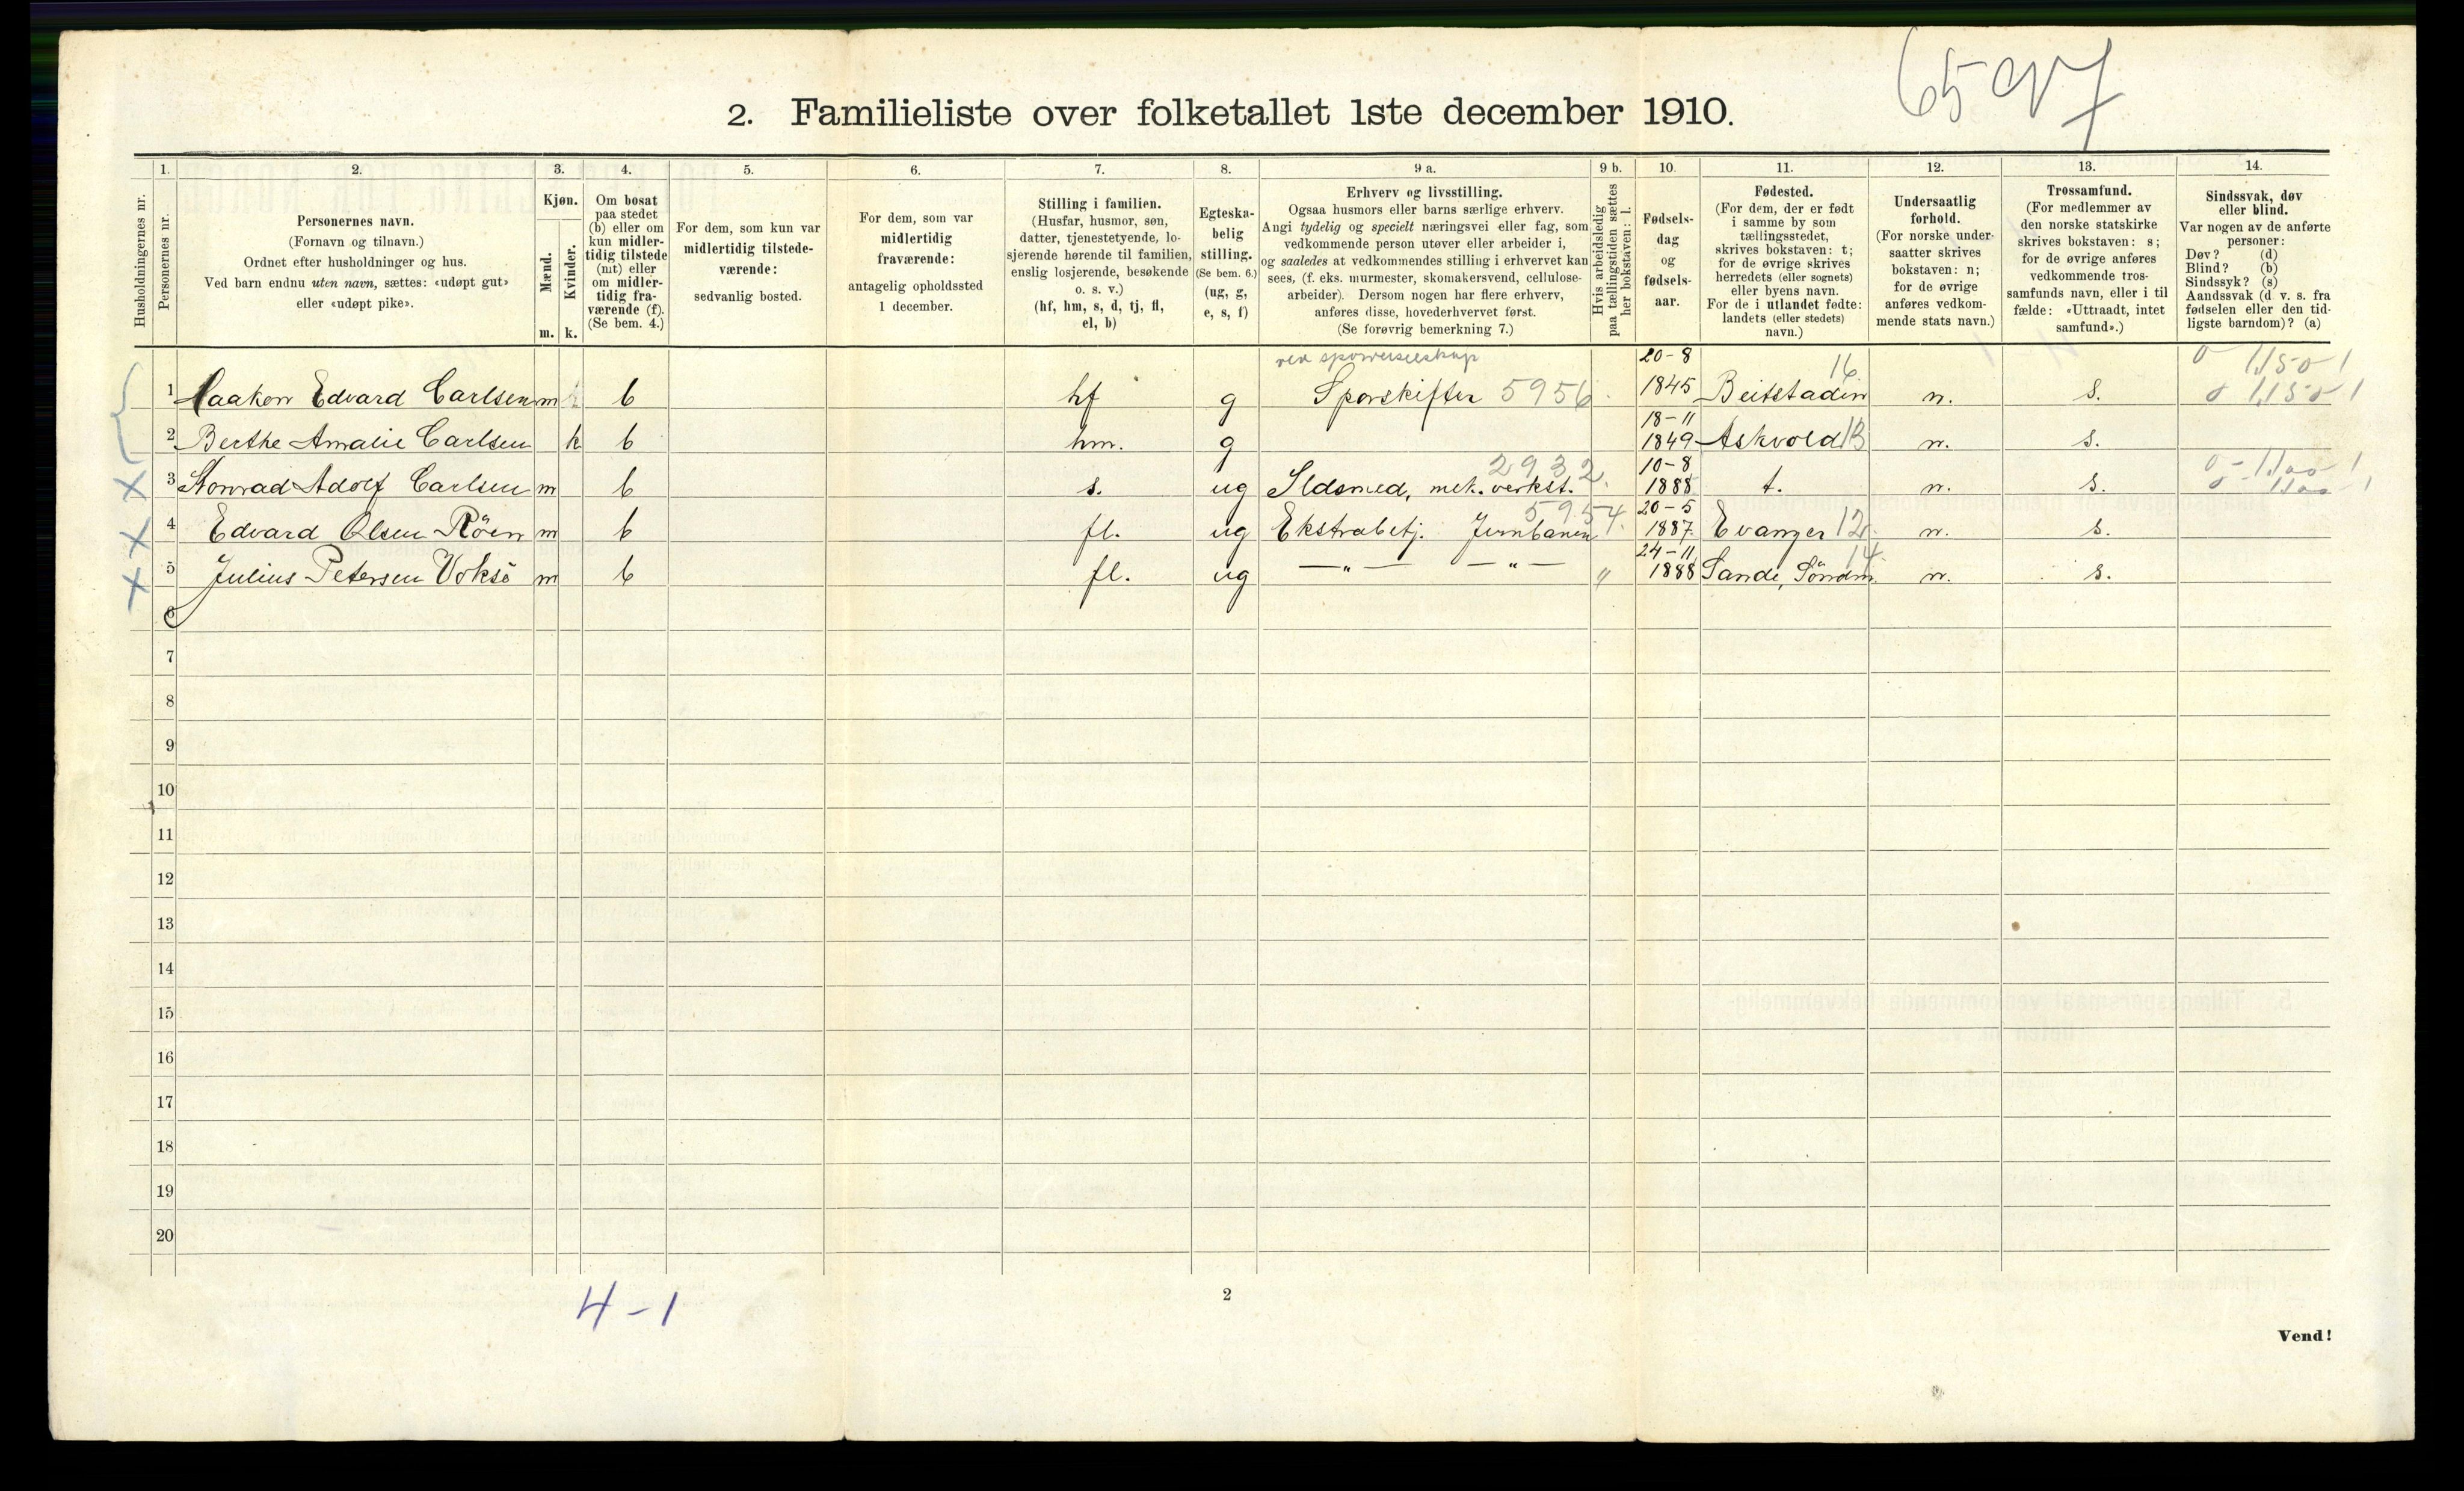 65
2. Familieliste over folketallet 1ste december 1910.
1. 2. 3. 4. 5. 6. 7. 8. 9 a. 9 b. 10. 11. 12. 13. 14.
Husholdningernes nr.
Personernes nr.
Personernes navn.
(Fornavn og tilnavn.)
Ordnet efter husholdninger og hus.
Ved barn endnu uten navn, sættes: «udøpt gut»
eller «udøpt pike».
Kjøn.
Mænd.
Kvinder.
m. k.
Om bosat
paa stedet
(b) eller om
kun midler-
tidig tilstede
(mt) eller
om midler-
tidig fra-
værende (f).
(Se bem. 4.)
For dem, som kun var
midlertidig tilstede-
værende:
sedvanlig bosted.
For dem, som var
midlertidig
fraværende:
antagelig opholdssted
1 december.
Stilling i familien.
(Husfar, husmor, søn,
datter, tjenestetyende, lo-
sjerende hørende til familien,
enslig losjerende, besøkende
o. s. v.)
(hf, hm, s, d, tj, fl,
el, b)
Egteska-
belig
stilling.
(Se bem. 6.)
(ug, g,
e, s, f)
Erhverv og livsstilling.
Ogsaa husmors eller barns særlige erhverv.
Angi tydelig og specielt næringsvei eller fag, som
vedkommende person utøver eller arbeider i,
og saaledes at vedkommendes stilling i erhvervet kan
sees, (f. eks. murmester, skomakersvend, cellulose-
arbeider). Dersom nogen har flere erhverv,
anføres disse, hovederhvervet først.
(Se forøvrig bemerkning 7.)
Hvis arbeidsledig
paa tællingstiden sættes
her bokstaven: l.
Fødsels-
dag
og
fødsels-
aar.
Fødested.
(For dem, der er født
i samme by som
tællingsstedet,
skrives bokstaven: t;
for de øvrige skrives
herredets (eller sognets)
eller byens navn.
For de i utlandet fødte:
landets (eller stedets)
navn.)
Undersaatlig
forhold.
(For norske under-
saatter skrives
bokstaven: n;
for de øvrige
anføres vedkom-
mende stats navn.)
Trossamfund.
(For medlemmer av
den norske statskirke
skrives bokstaven: s;
for de øvrige anføres
vedkommende tros-
samfunds navn, eller i til
fælde: «Uttraadt, intet
samfund».)
Sindssvak, døv
eller blind.
Var nogen av de anførte
personer:
Døv? (d)
Blind? (b)
Sindssyk? (s)
Aandssvak (d v. s. fra
fødselen eller den tid-
ligste barndom)? (a)
ved sporveisselskap 20-8 16
1 Haakon Edvard Carlsen m b hf g Sporskifter 5956 1845 Beitstaden n. s.
18-11
2 Berthe Amalie Carlsen k b hm. g 1849 Askvold 13 n. s.
2932 10-8
3 Konrad Adolf Carlsen m b s. ug Ildsmed, mek. verkst. 1888 t. n. s.
5954 20-5
4 Edvard Olsen Röen m b fl. ug Ekstrabetj. Jernbanen 1887 Evanger 12 n. s.
24-11 14
5 Julius Petersen Voksö m b fl. ug —„— —„— 1888 Sande, Söndm. n. s.
6
7
8
9
10
11
12
13
14
15
16
17
18
19
20
4-1
2
Vend!